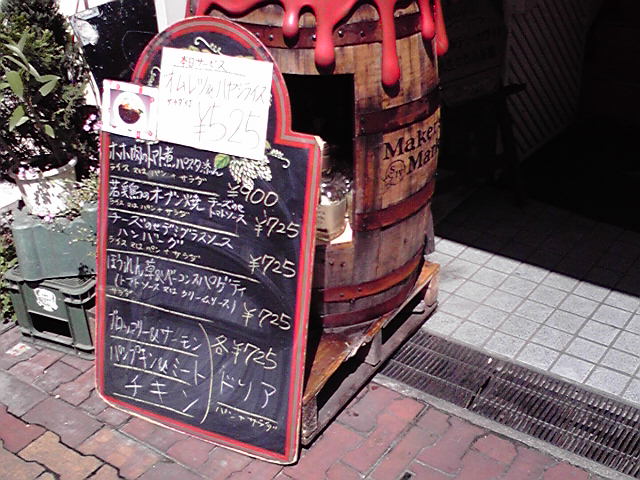 本日サービス
オムレツ&ハヤシライス
サラダ付
¥525
ホホ肉のトマト煮 パスタ添え
ライス又はパン+サラダ
¥900
若鶏のオーブン焼 チーズのせ
トマトソース
ライス又はパン+サラダ
¥725
チーズのせデミグラスソース
ハンバーグ
ライス又はパン+サラダ
¥725
ほうれん草&ベーコンスパゲティ
(トマトソース又はクリームソース)
サラダ
¥725
ブロッコリー&サーモン
パンプキン&ミート
チキン
各¥725
ドリア
パン+サラダ
Maker's
Mark